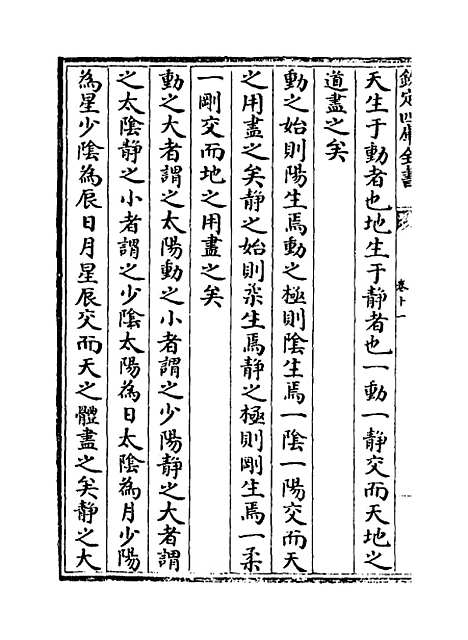 欽定四庫全書
卷十一
天生于動者也地生于静者也一動一静交而天地之
道盡之矣
動之始則陽生焉動之極則陰生焉一陰一陽交而天
之用盡之矣静之始則柔生焉静之極則剛生焉一柔
一剛交而地之用盡之矣
動之大者謂之太陽動之小者謂之少陽静之大者謂
之太陰静之小者謂之少陰太陽為日太陰為月少陽
為星少陰為辰日月星辰交而天之體盡之矣静之大